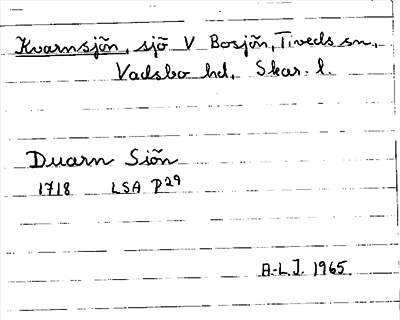 Kvarnsjön, sjö V Bosjön, Tiveds sn,
Vadsbo hd, Skar. l.
Duarn Siön
1718 LSA P29
A-L.J. 1965.